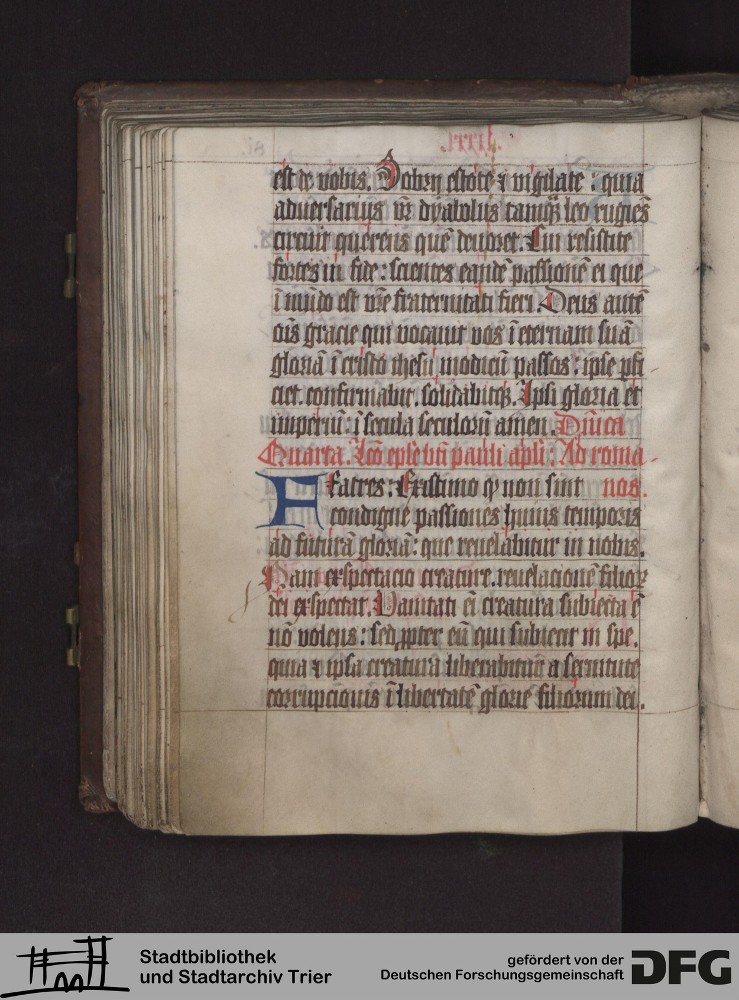 est de vobis. Sobrij estote ⁊ vigilate : quia
aduersarius vr̄ dyabolus tamqȝ leo rugiēs
circuit querens quē deuoret. Cui resistite
fortes in fide : scientes eandē passionē ei que
ī mūdo est vr̄e fraternitati fieri. Deus autē
oīs gracie qui vocauit vos ī eternam suā
gloriā ī cristo ihesu, modicū passos : ipse
ciet. confirmabit. solidabitqȝ. Ipsi gloria et
imperiū : ī secula seculorū amen. Dn̄ica
Quarta. Lc̄o ep̄le bt̄i pauli apl̄i : Ad roma
Fratres : Existimo ꝙ non sint nos.
condigne passiones huius temporis
ad futurā gloriā : que reuelabitur in nobis.
Nam exspectacio creature. reuelacionē filioꝝ
dei exspectat. Vanitati ei creatura subiecta ē
nō volens : sed ꝓpter eū qui subiecit in spe.
quia ⁊ ipsa creatura liberabitur a seruitute
corrupcionis ī libertatē glorie filiorum dei.
Stadtbibliothek
und Stadtarchiv Trier
gefördert von der
Deutschen Forschungsgemeinschaft
DFG